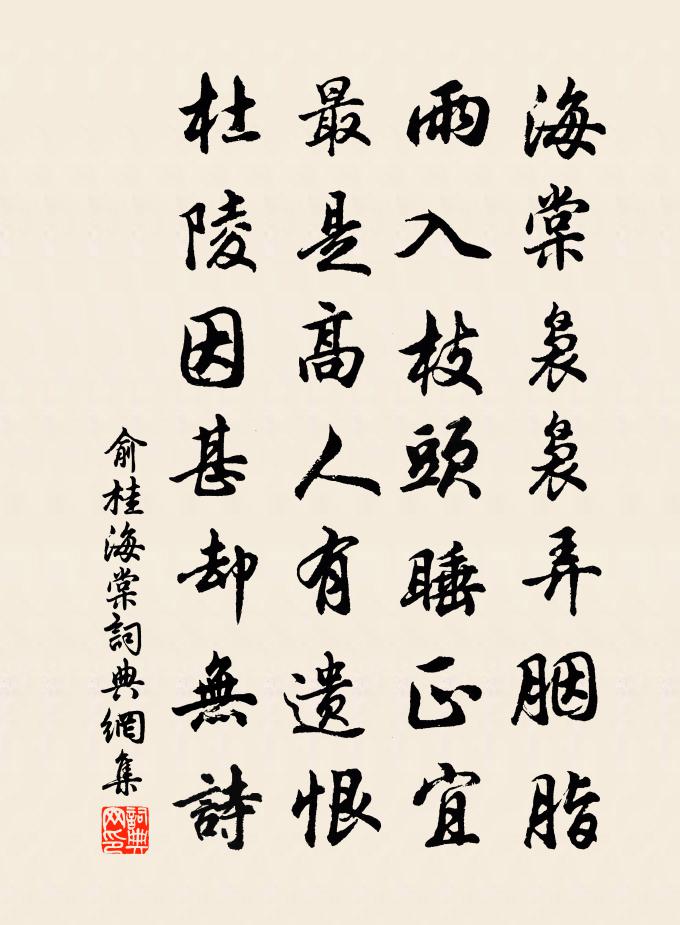 海棠裊裊弄胭脂
雨入枝頭睡正宜
最是高人有遺恨
杜陵因甚却無詩
俞桂海棠詞典網集
詞典網印